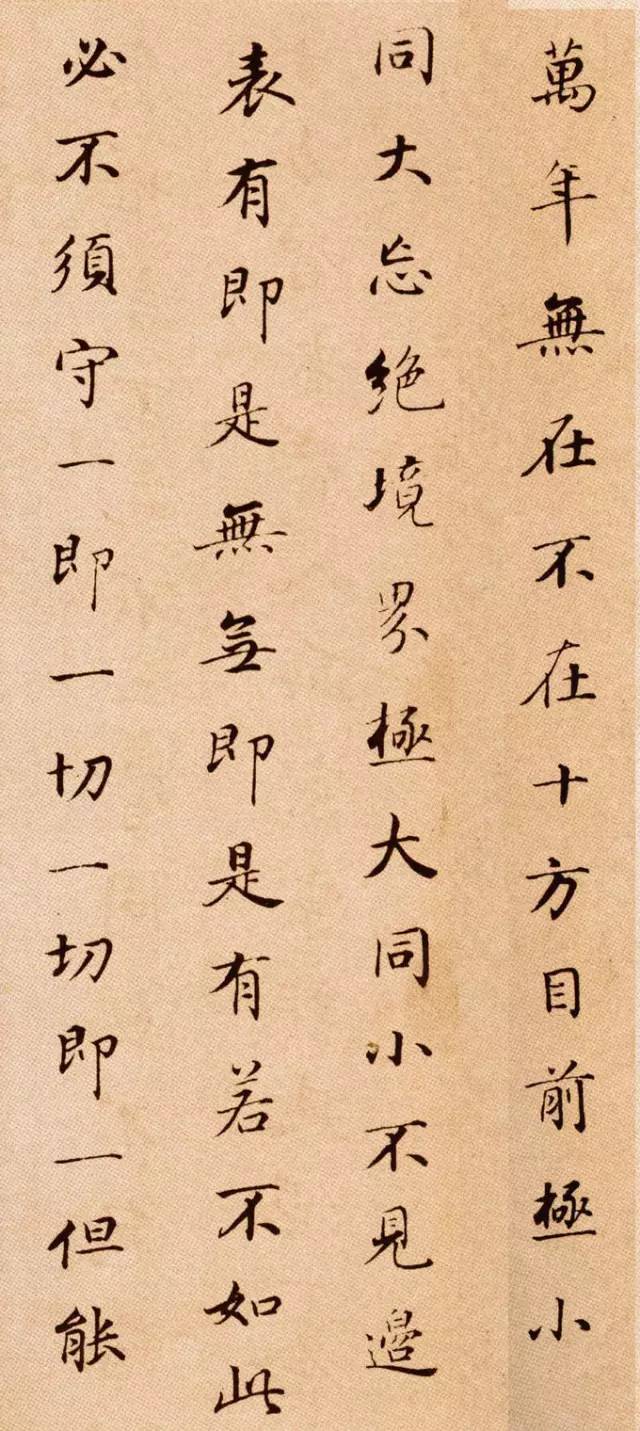 萬年無在不在十方目前極小
同大忘絶境界極大同小不見邉
表有即是無無即是有若不如此
必不須守一即一切一切即一但能